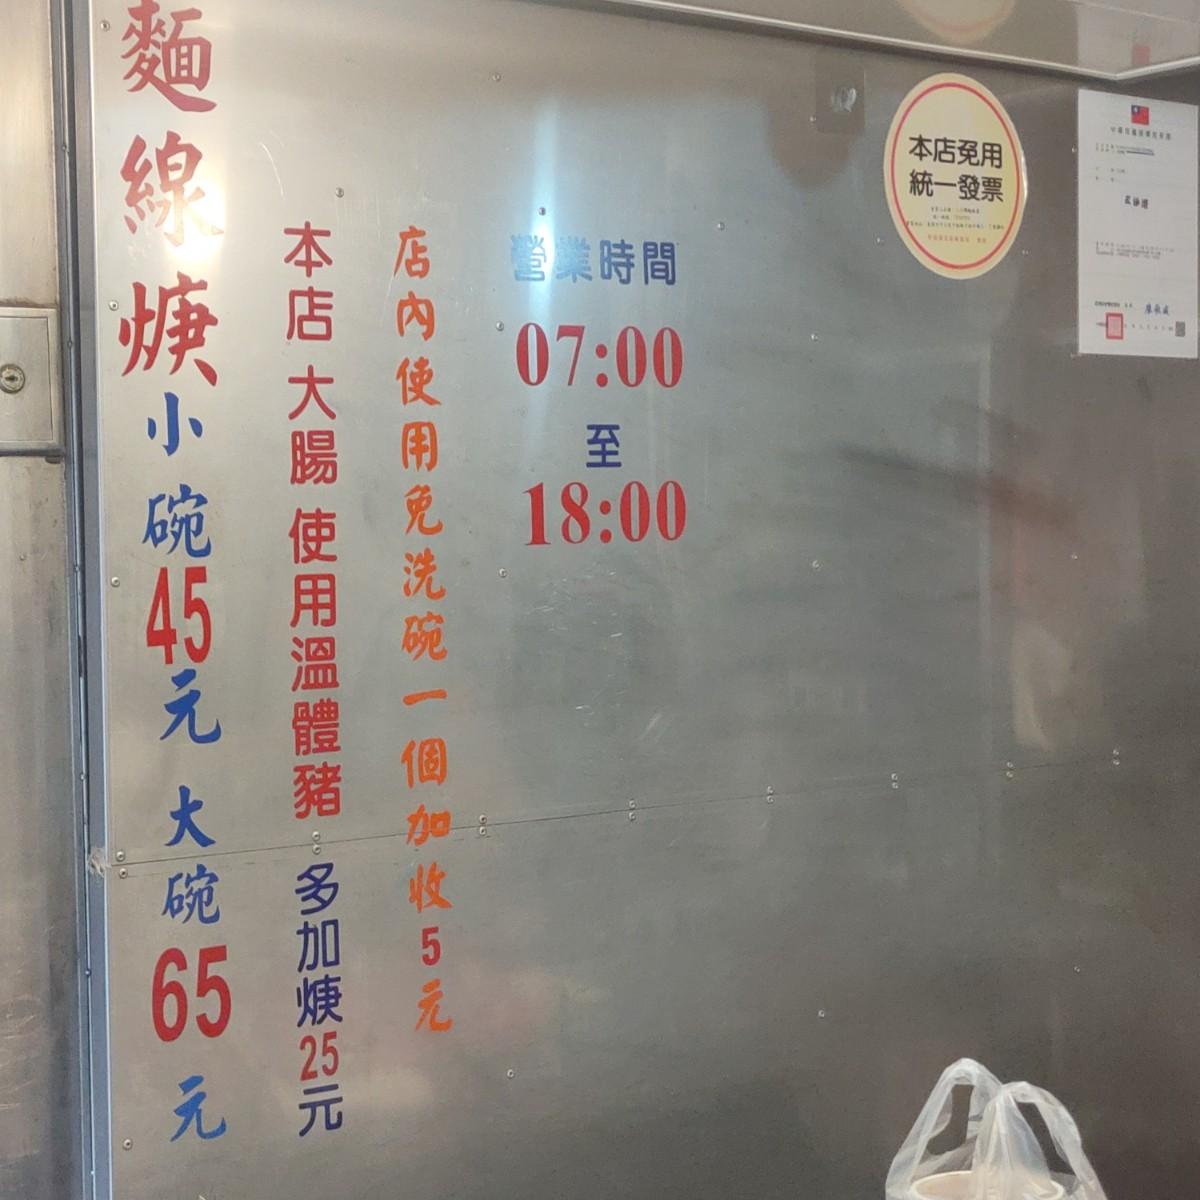 麵線焿小碗45元 大碗65元
本店 大腸 使用溫體豬 多加焿25元
店內使用免洗碗一個加收5元
營業時間
07:00
至
18:00
本店免用
統一發票